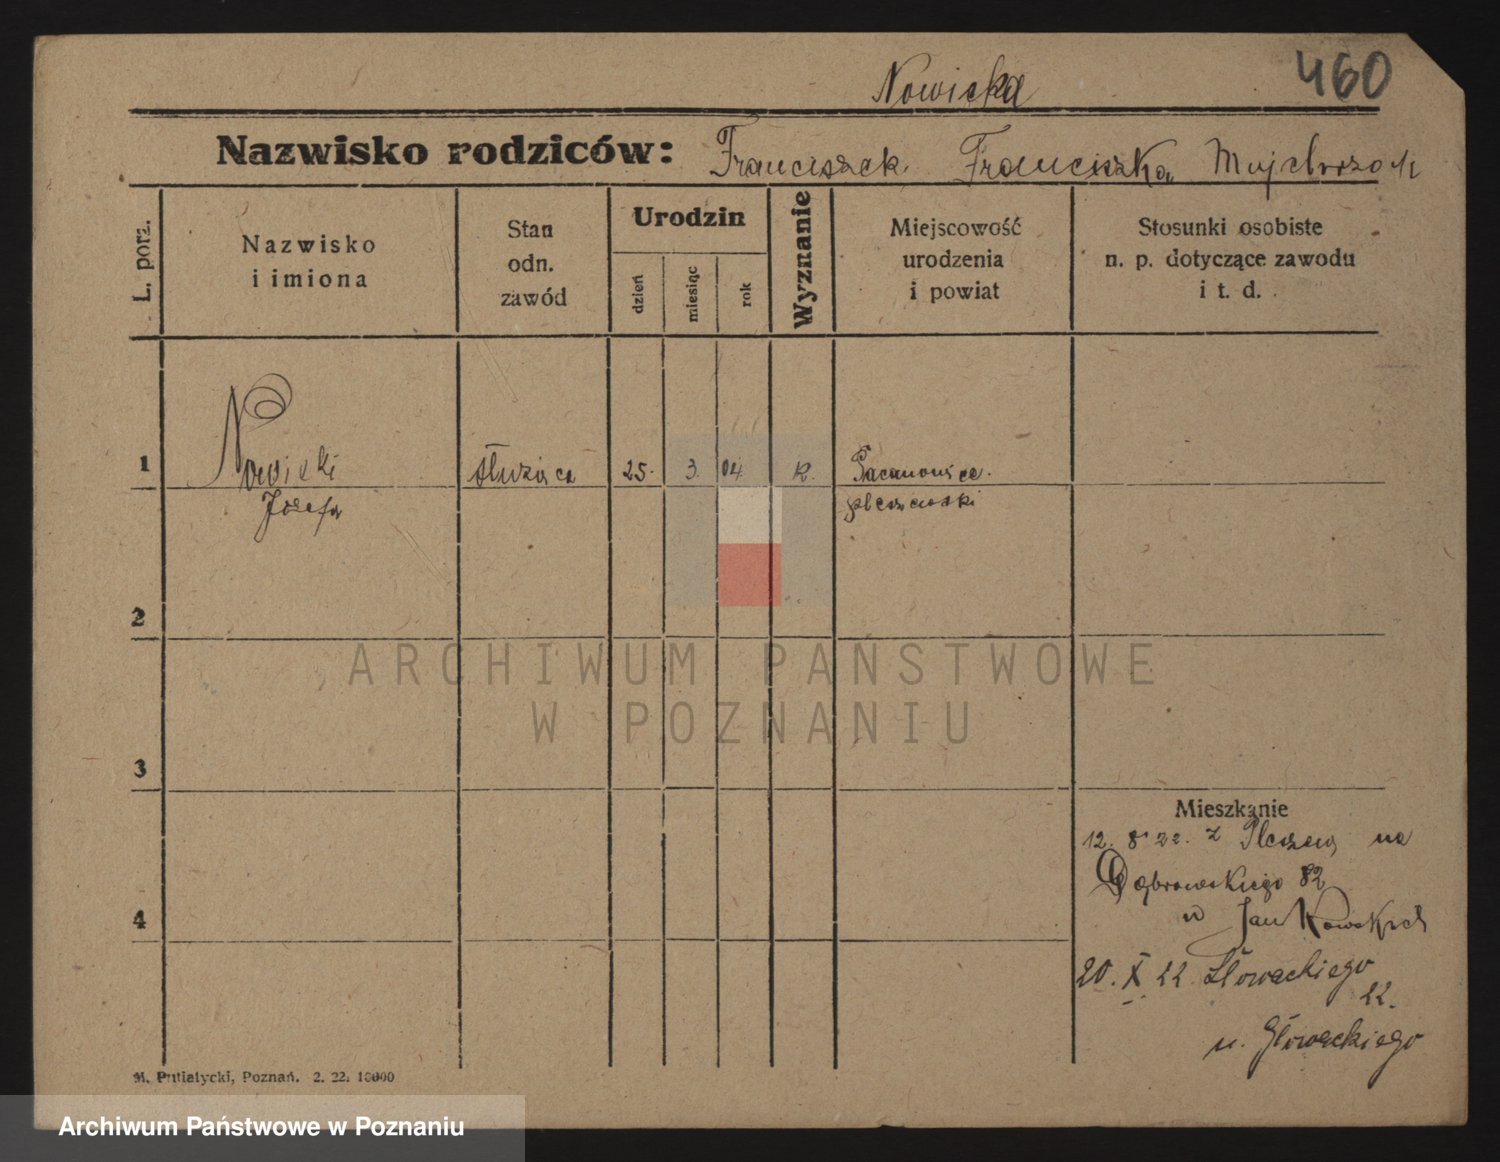 460
Nowicka
Nazwisko rodziców: Franciszek Franciszka
L. porz.
Nazwisko
i imiona
Stan
odn.
zawód
Urodzin
dzień
miesiąc
rok
Wyznanie
Miejscowość
urodzenia
i powiat
Stosunki osobiste
n. p. dotyczące zawodu
i t. d.
1 Nowicki służąca 25. 3. 04. K. Pacanowice.
Józefa pleszewski
2
ARCHIWUM PAŃSTWOWE
W POZNANIU
3
Mieszkanie
12. 8 22. z Pleszewa na
Dąbrowskiego 82
4
u Jan
20. X 22 Słowackiego
22.
u. Głowackiego
M. Putiatycki, Poznań. 2. 22. 10000
Archiwum Państwowe w Poznaniu